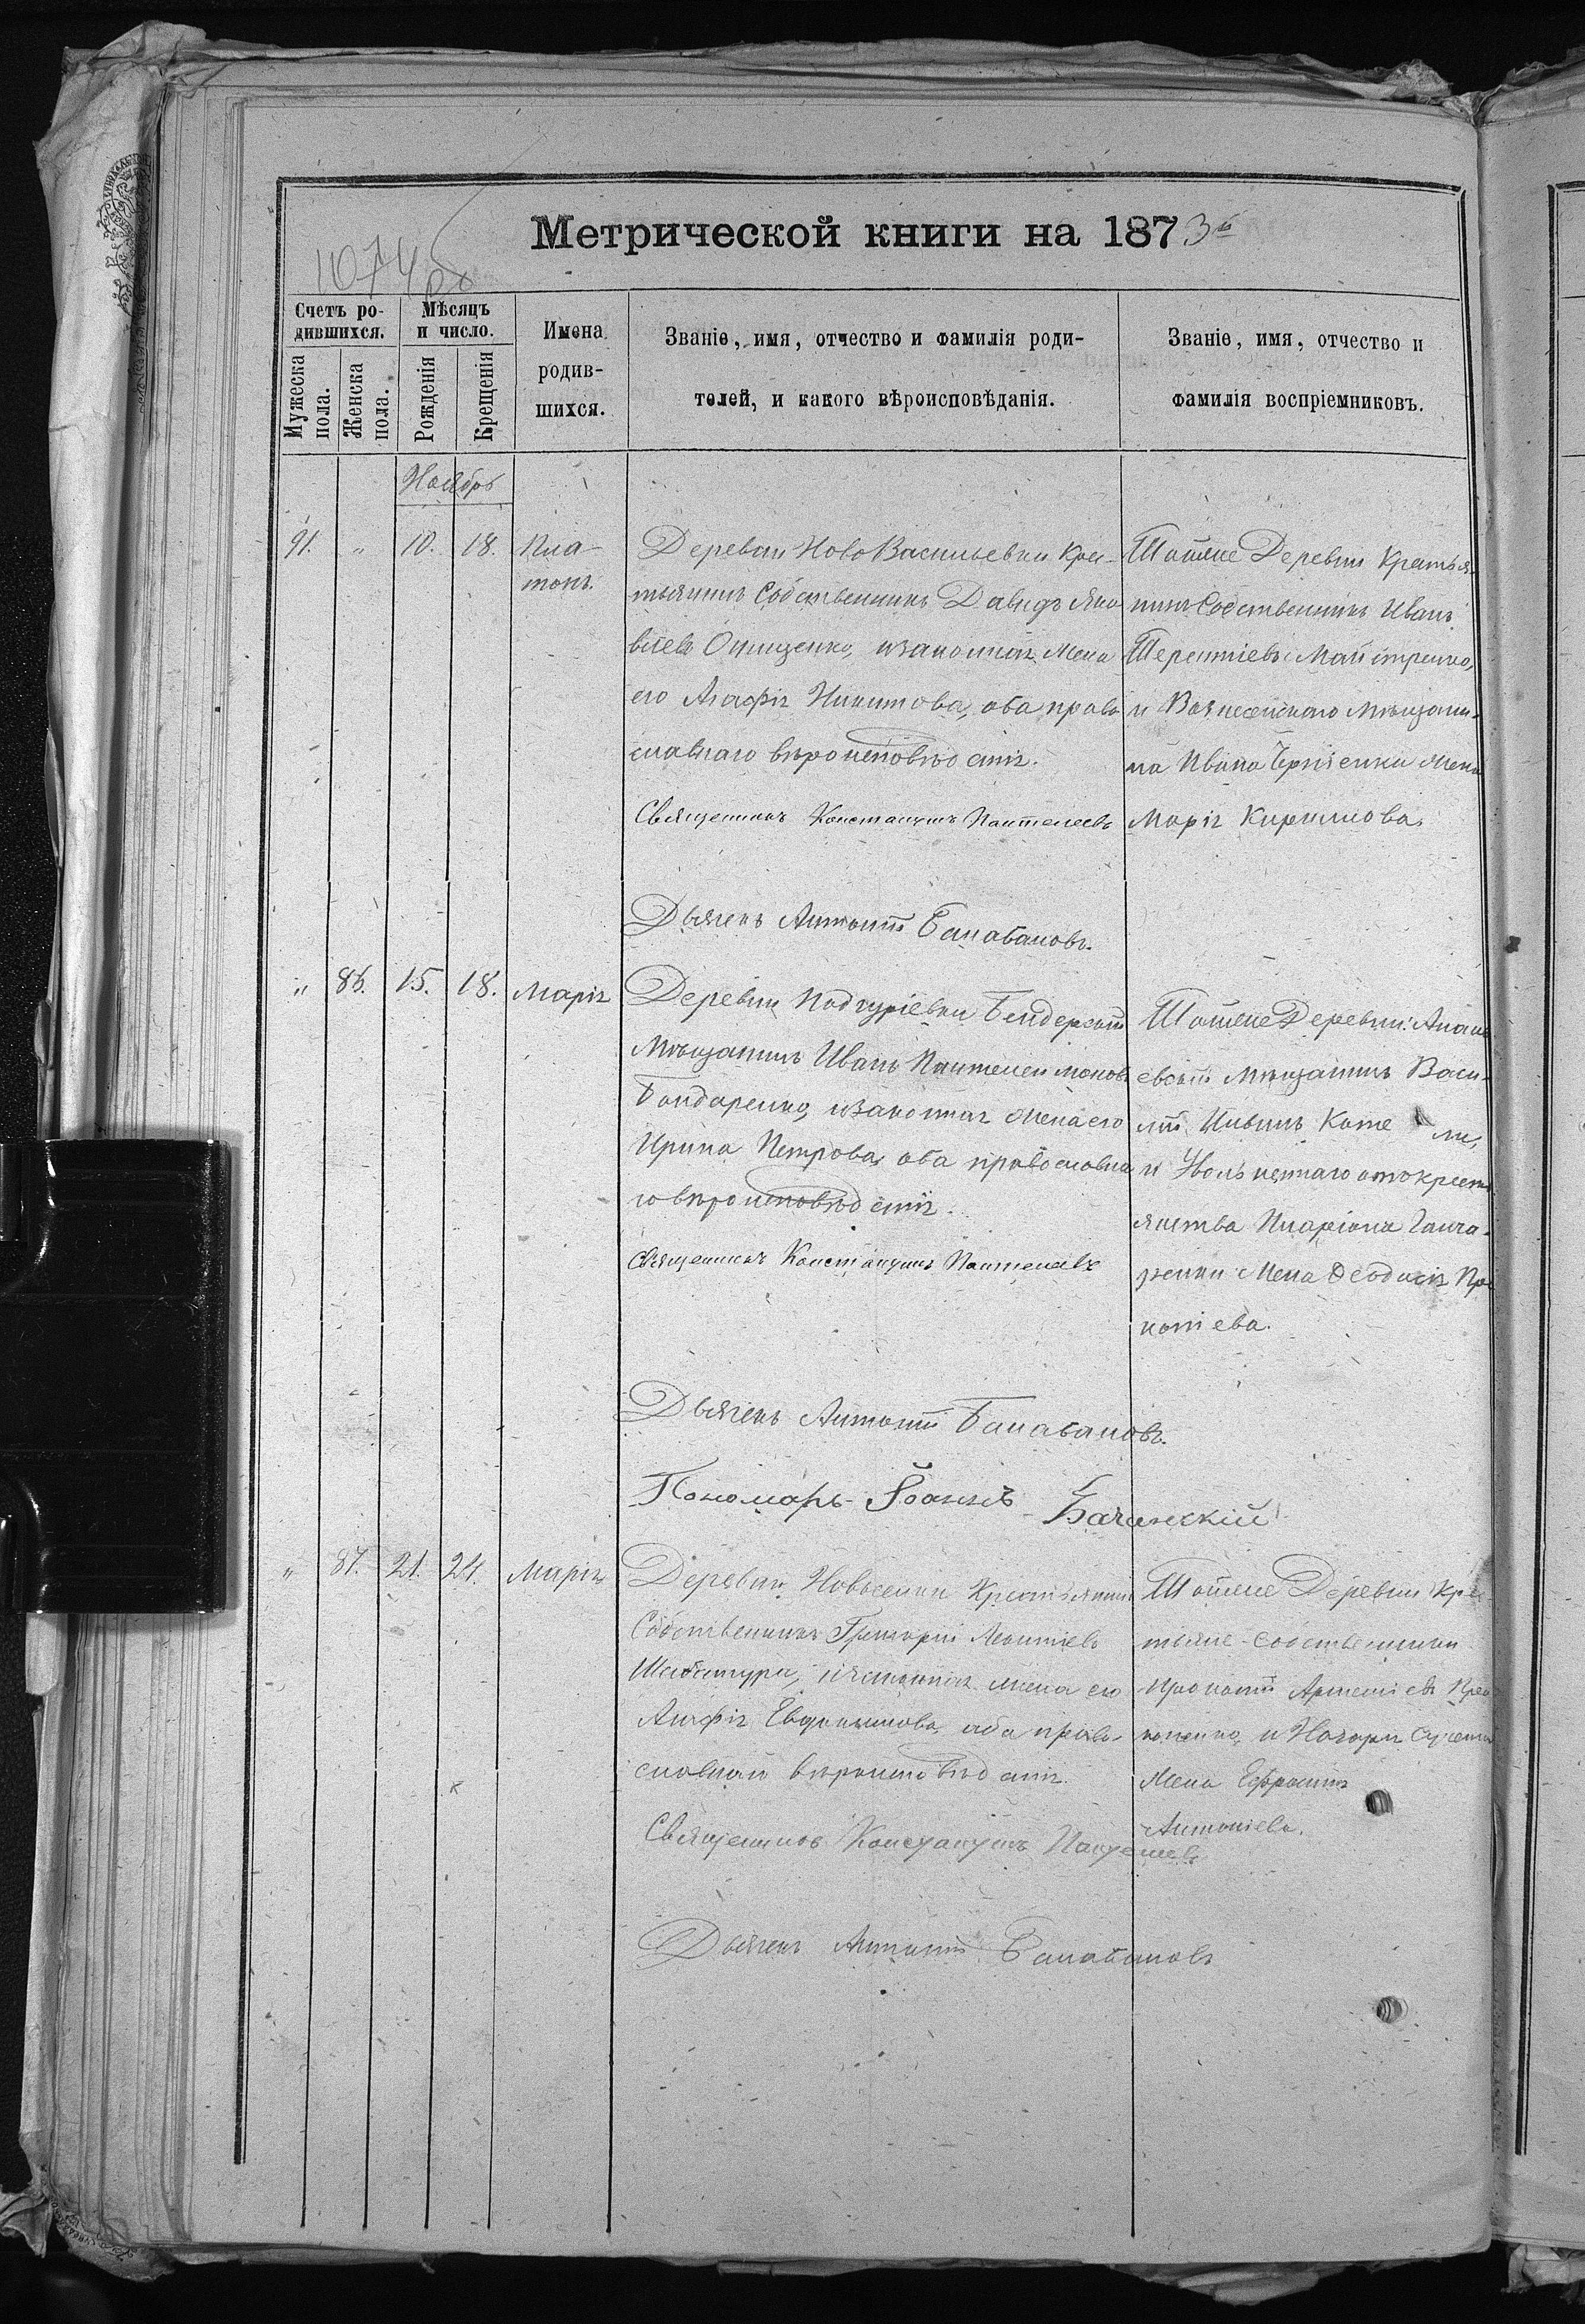 1074 об
Метрической книги на 1873й
Счетъ ро-
дившихся.
Мужеска пола.
Женска пола.
Мѣсяцъ
и число.
Рожденія
Крещенія
Имена
родив-
шихся.
Званіе, имя, отчество и фамилія роди-
телей, и какого вѣроисповѣданія.
Званіе, имя, отчество и
фамилія воспріемниковъ.
Ноябрь
91. " 10. 18. Пла-
тонъ.
Деревни НовоВасильевки Крес-
тьянинъ Собственникъ Давидъ Яко
влевъ Онищенко, изаконная жена
его Агафія Никитова, оба право
славнаго вѣроисповѣданія.
Священникъ Константинъ Пантелеевъ
Дьячекъ Антоній Балабановъ.
Тойже Деревни Крестья
нинъ Собственникъ Иванъ
Терентіевъ Майстренко,
и Вознесенскаго Мѣщани-
на Ивана жена
Марія Кирилова.
" 86. 15. 18. Марія
Деревни Подгуріевки Бендерскій
Мѣщанинъ Иванъ Пантелеймоновъ
Бондаренко, изаконная жена его
Ирина Петрова, оба православна
го вѣроисповѣданія.
Священникъ Константинъ Пантелеевъ
Дьячекъ Антоній Балабановъ.
Пономарь Іоаннъ Бачинскій
Тойже Деревни Анань
евскій Мѣщанинъ Васи-
лій
и Увольненнаго отъ крестъ
янства Иларіона Ганча-
ренки жена Феодосія Про
копіева.
" 87. 21. 24. Марія
Деревни Новоселки Крестьянинъ
Собственникъ Григорій Леонтіевъ
Шабатура, изаконная жена его
Агафія Евдокимова, оба право-
славнаго вѣроисповѣданія.
Священникъ Константинъ Пантелеевъ
Дьячекъ Антоній Балабановъ
Тойже Деревни Крес
тьяне-собственники
Прокопій Артеміевъ Про
копенко, и Назарія
жена Ефросинія
Антоніева.